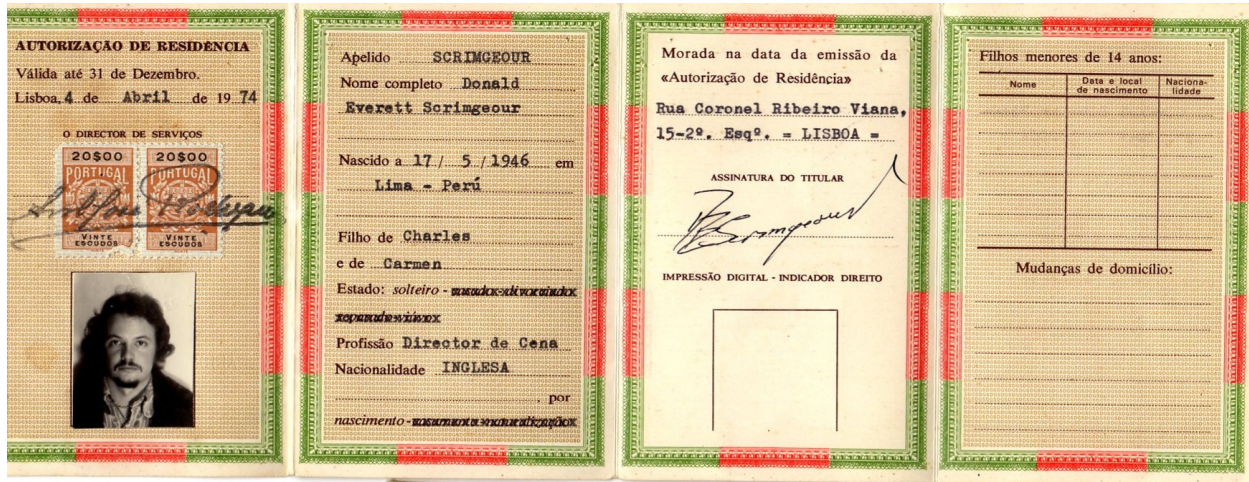 AUTORIZAÇÃO DE RESIDÊNCIA
Válida até 31 de Dezembro.
Lisboa, 4 de Abril de 19 74
O DIRECTOR DE SERVIÇOS
20$00 20$00
PORTUGAL PORTUGAL
VINTE ESCUDOS VINTE ESCUDOS
Apelido SCRIMGEOUR
Nome completo Donald
Everett Scrimgeour
Nascido a 17 / 5 / 1946 em
Lima - Perú
Filho de Charles
e de Carmen
Estado: solteiro - casado - divorciado
separado - viúvo
Profissão Director de Cena
Nacionalidade INGLESA
, por
nascimento - casamento - naturalização
Morada na data da emissão da
«Autorização de Residência»
Rua Coronel Ribeiro Viana,
15-2º. Esqº. = LISBOA =
ASSINATURA DO TITULAR
Scrimgeour
IMPRESSÃO DIGITAL - INDICADOR DIREITO
Filhos menores de 14 anos:
Nome Data e local de nascimento Naciona-lidade
Mudanças de domicílio: